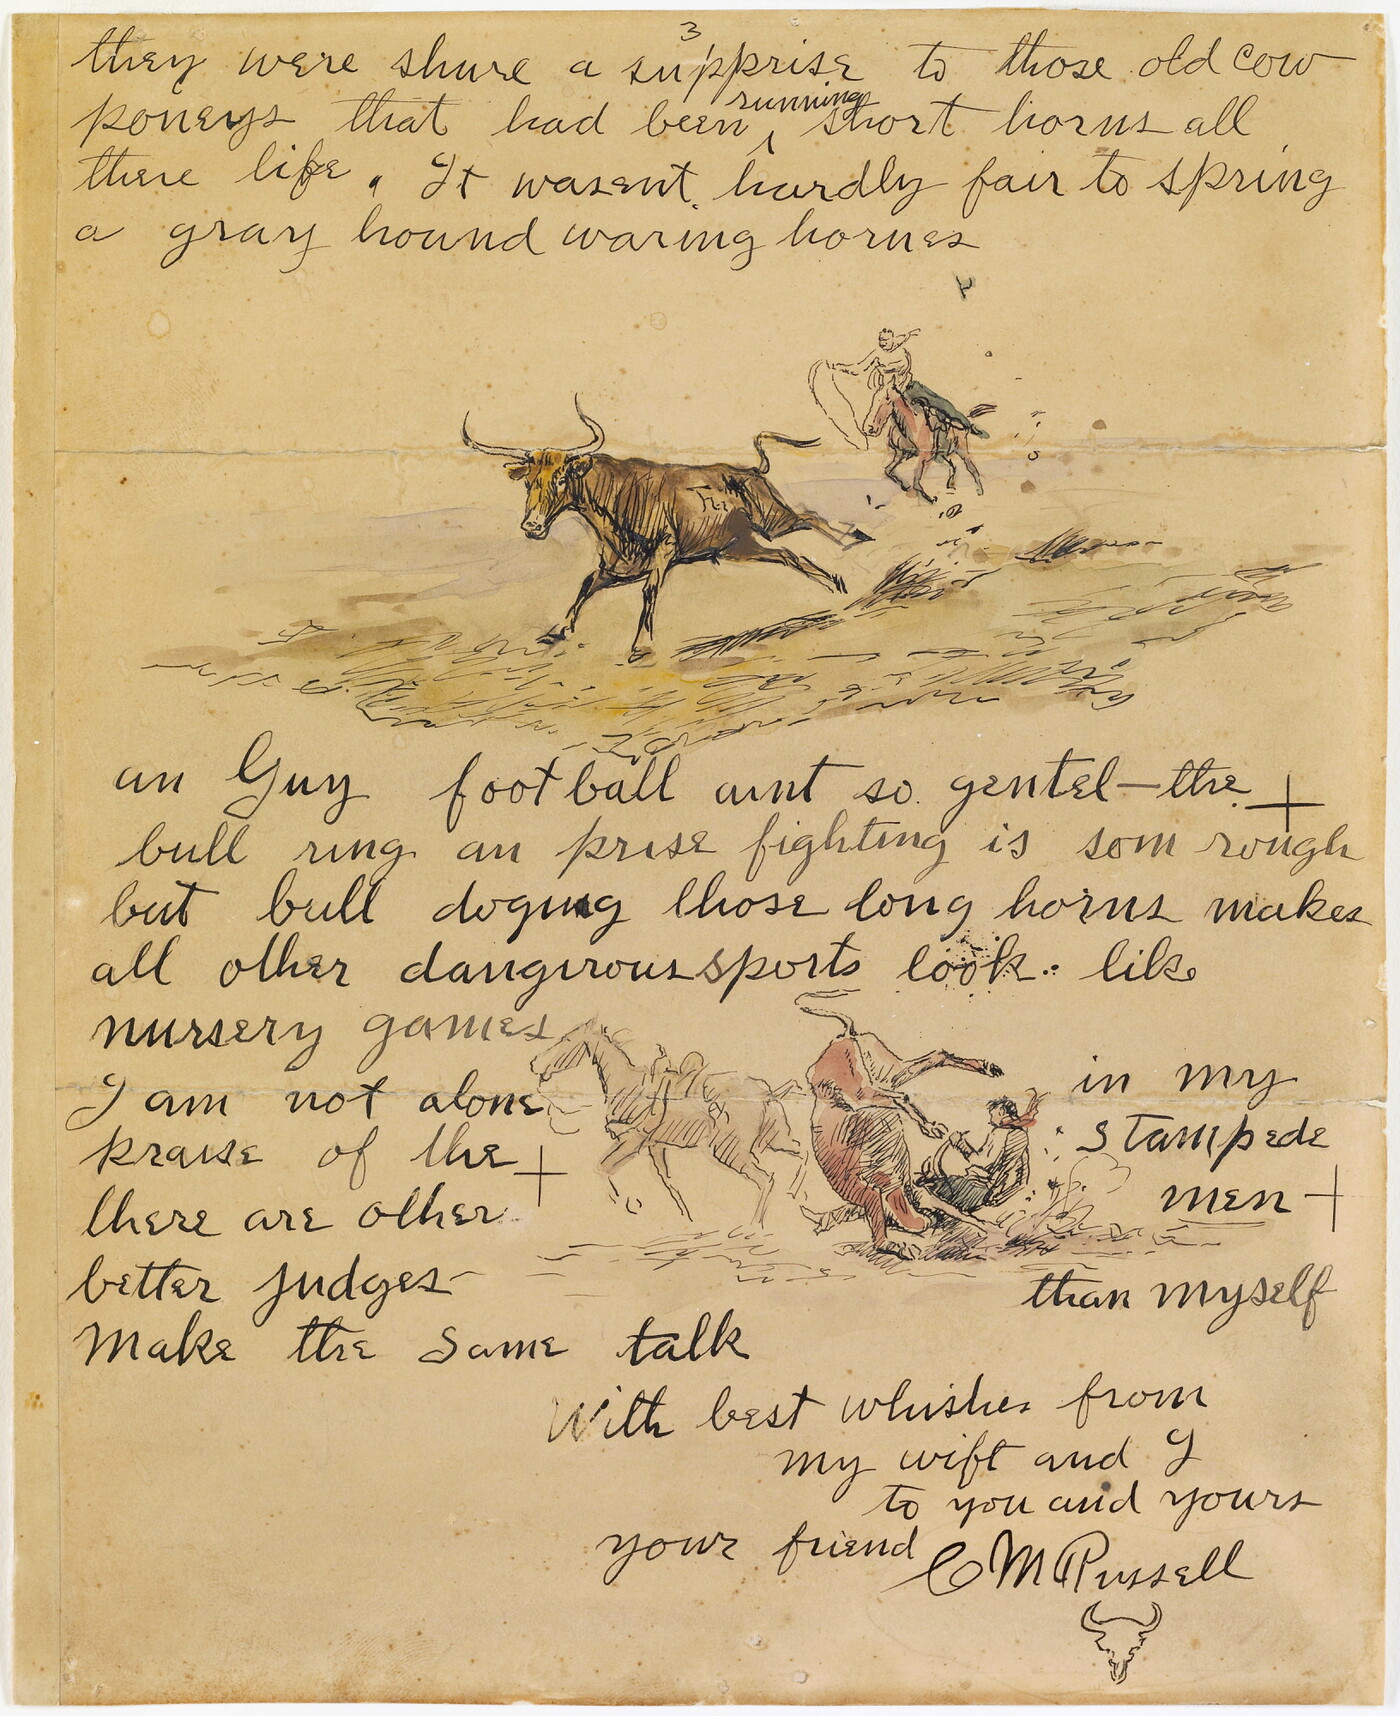 3
they were shure a supprise to those old cow
poneys that had been running short horns all
there life. It wasent hardly fair to spring
a gray hound waring hornes
an Guy foot ball aint so gentel—the
bull ring an prise fighting is som rough
but bull doging those long horns makes
all other dangirous sports look like
nursery games
I am not alone in my
praise of the stampede
there are other men
better judges than myself
Make the same talk
With best whishes from
my wife and I
to you and yours
your friend
CM Russell